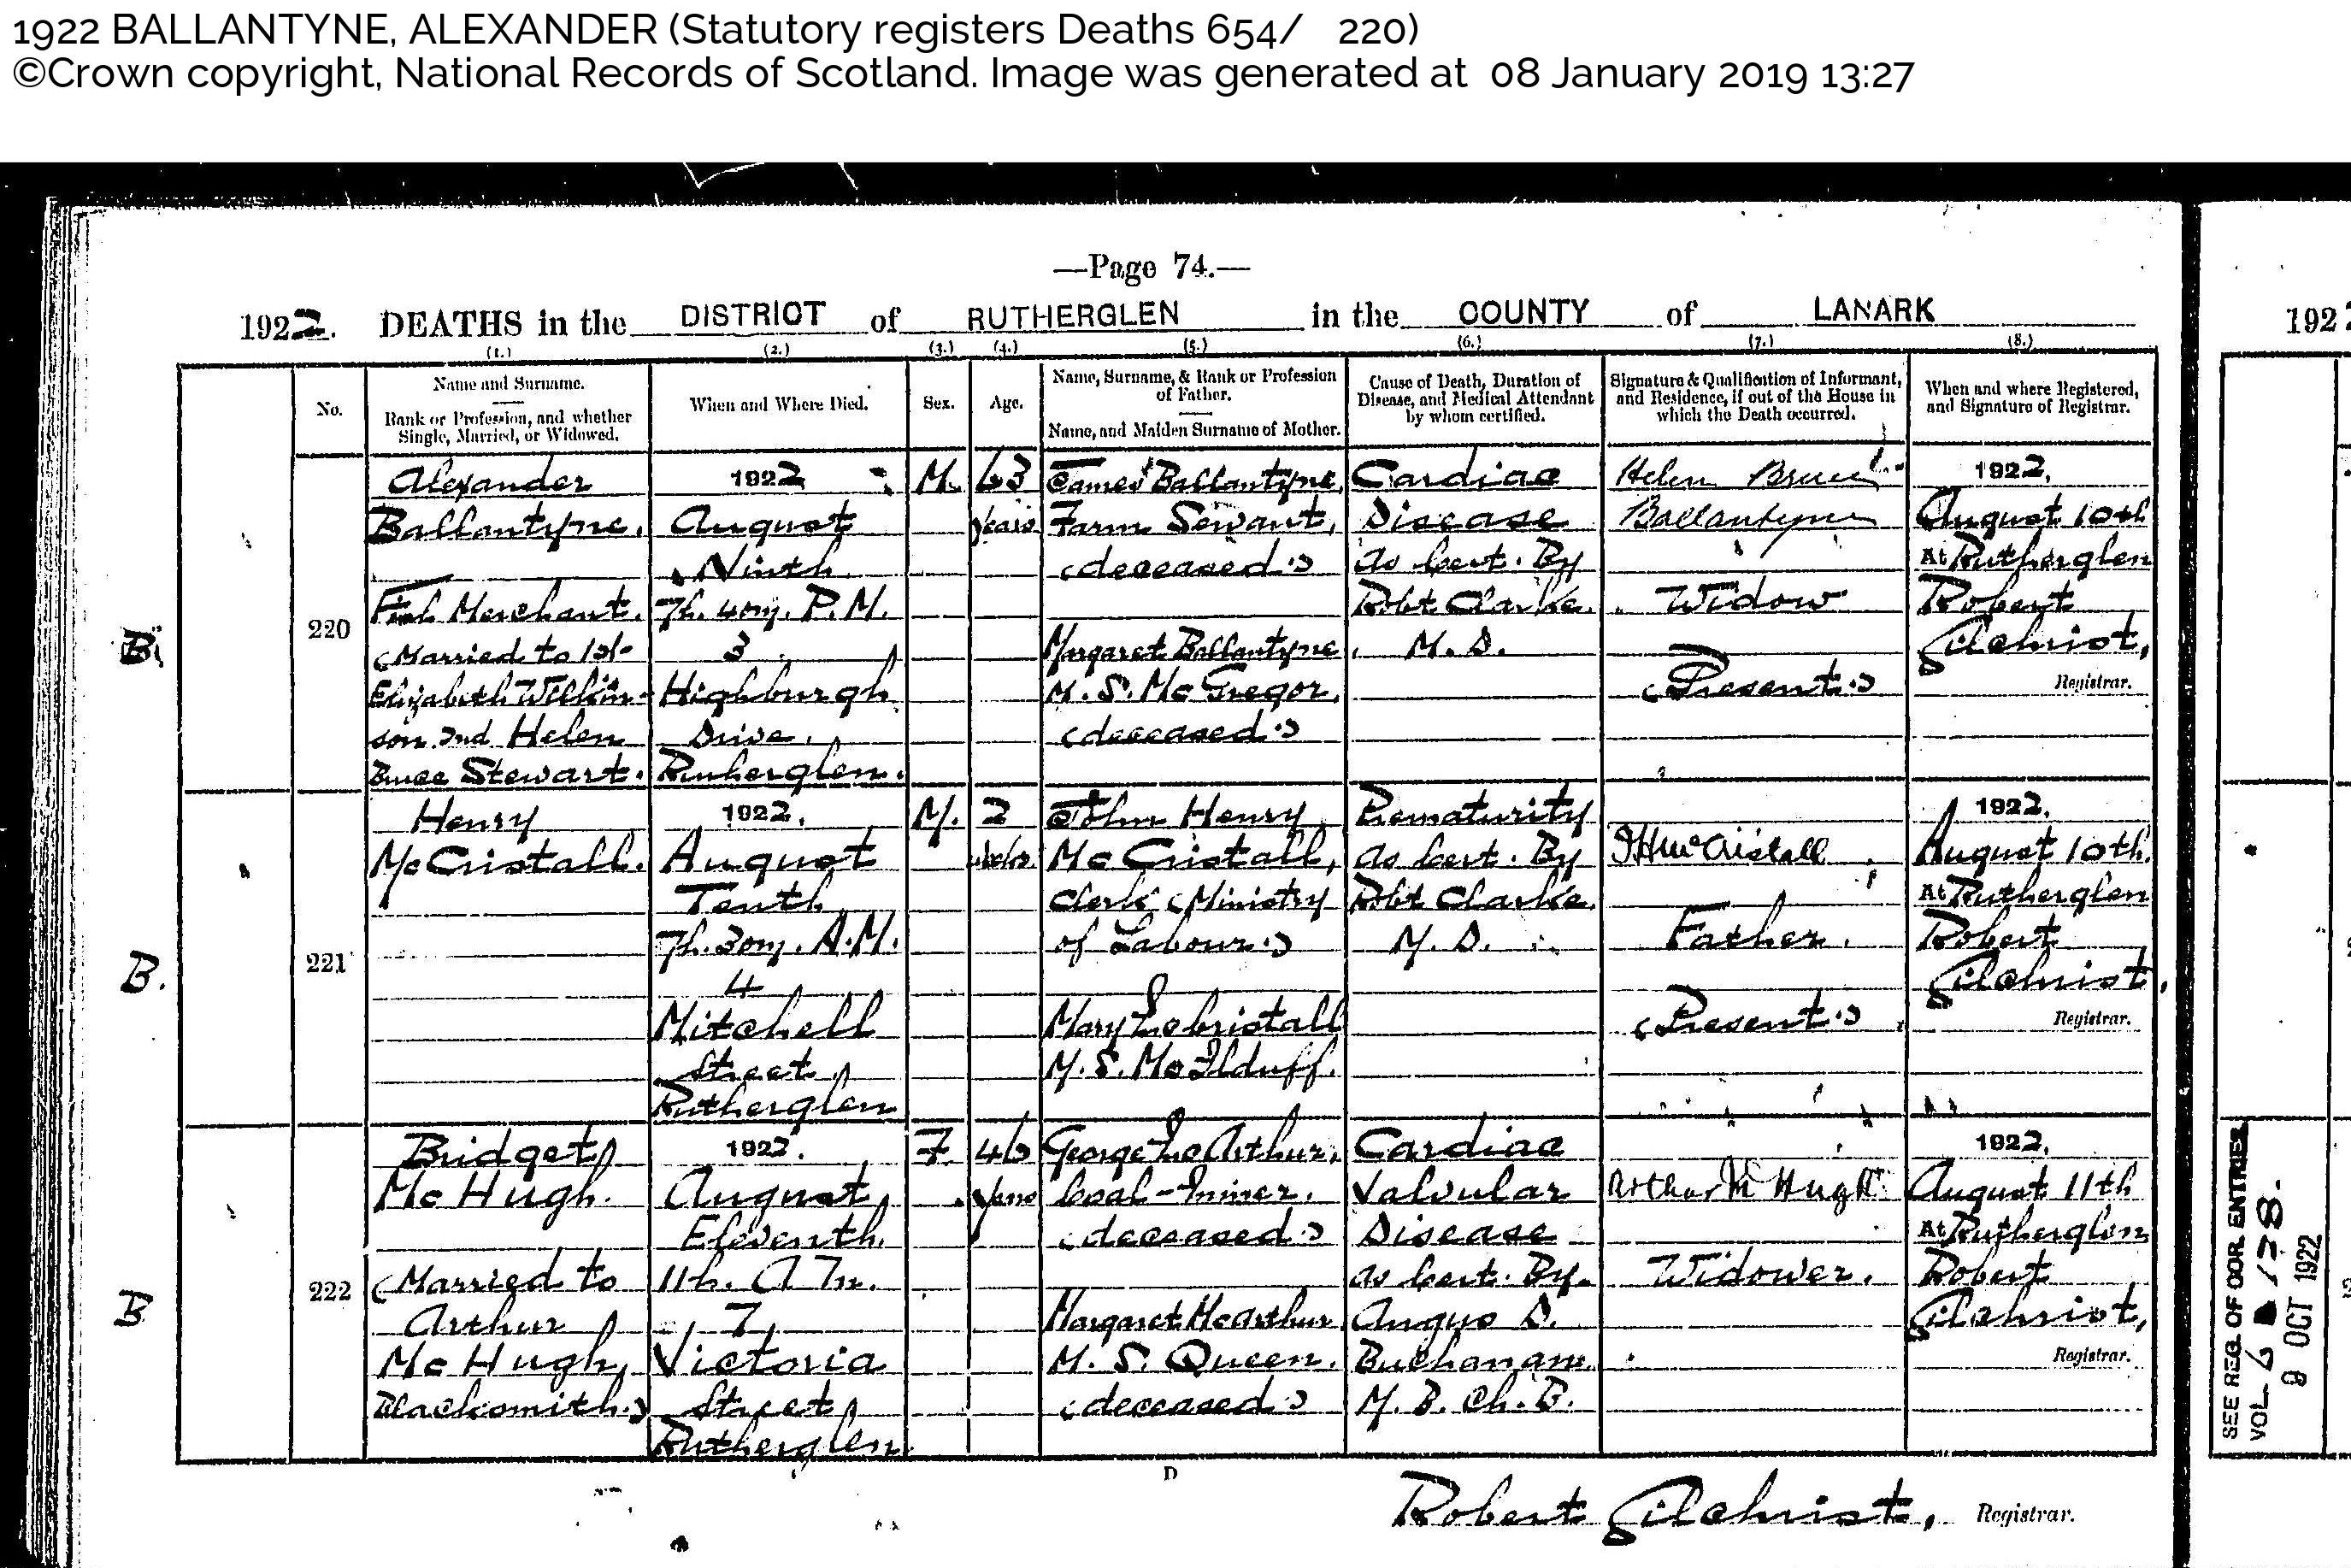 1922 BALLANTYNE, ALEXANDER (Statutory registers Deaths 654/ 220)
©Crown copyright, National Records of Scotland. Image was generated at 08 January 2019 13:27
—Page 74.—
1922. DEATHS in the DISTRICT of RUTHERGLEN in the COUNTY of LANARK
192
(1.) (2.) (3.) (4.) (5.) (6.) (7.) (8.)
No.
Name and Surname.
Rank or Profession, and whether
Single, Married, or Widowed.
When and Where Died.
Sex.
Age.
Name, Surname, & Rank or Profession
of Father.
Name, and Maiden Surname of Mother.
Cause of Death, Duration of
Disease, and Medical Attendant
by whom certified.
Signature & Qualification of Informant,
and Residence, if out of the House in
which the Death occurred.
When and where Registered,
and Signature of Registrar.
B.
220
Alexander
Ballantyne.
Fish Merchant.
(Married to 1st
Elizabeth Wilkin-
son 2nd Helen
Bruce Stewart.
1922
August
Ninth
7h. 40m. P.M.
3
Highburgh
Drive.
Rutherglen.
M.
63
years
James Ballantyne,
Farm Servant,
(deceased.)
Margaret Ballantyne
M.S. McGregor.
(deceased.)
Cardiac
Disease
As Cert. By
Robt. Clarke.
M.D.
Helen Bruce
Ballantyne
Widow
(Present.)
1922.
August 10th
At Rutherglen
Robert
Gilchrist,
Registrar.
B.
221
Henry
McCristall.
1922.
August
Tenth
7h. 30m. A.M.
4
Mitchell
Street
Rutherglen
M.
2
weeks
John Henry
McCristall,
Clerk (Ministry
of Labour.)
Mary McCristall
M.S. McIlduff.
Prematurity
As Cert. By
Robt Clarke.
M.D.
J H McCristall
Father.
(Present.)
1922.
August 10th.
At Rutherglen
Robert
Gilchrist.
Registrar.
B
222
Bridget
McHugh.
(Married to
Arthur
McHugh,
Blacksmith.)
1922.
August
Eleventh.
11h. A.M.
7
Victoria
Street
Rutherglen.
F.
46
years
George McArthur,
Coal-Miner.
(deceased.)
Margaret McArthur
M.S. Queen.
(deceased.)
Cardiac
Valvular
Disease
As Cert. By.
Angus D.
Buchanan.
M.B. Ch.B.
Arthur McHugh
Widower.
1922.
August 11th
At Rutherglen
Robert
Gilchrist,
Registrar.
SEE REG. OF COR. ENTRIES
VOL 6 128.
9 OCT 1922
D
Robert Gilchrist, Registrar.